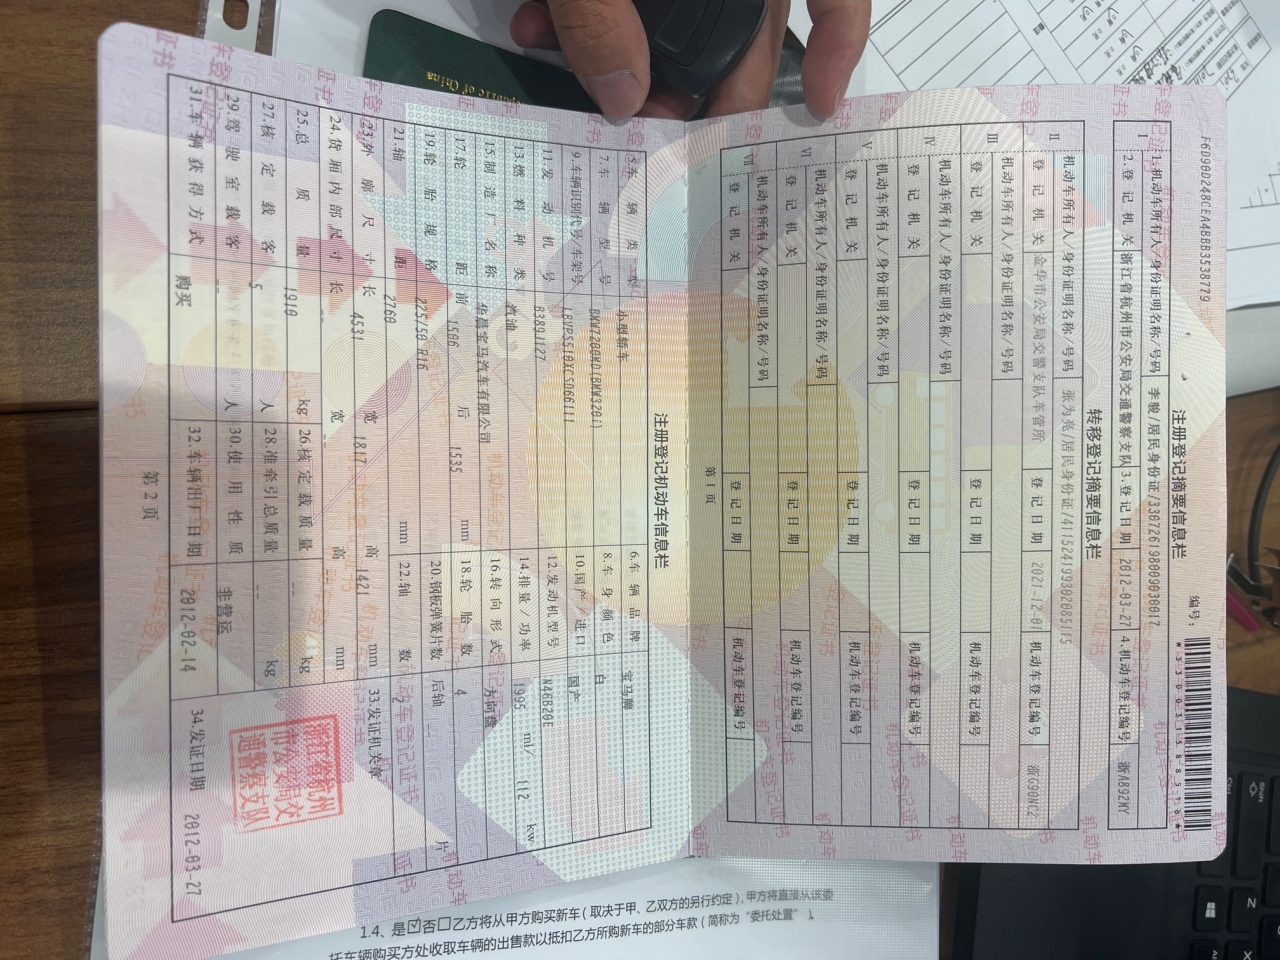 F6D90D248CEA4BBB3538779
编号:
*330031588316*
注册登记摘要信息栏
I 1.机动车所有人/身份证明名称/号码 李骏/居民身份证/330726198009030017
2.登记机关 浙江省杭州市公安局交通警察支队 3.登记日期 2012-03-27 4.机动车登记编号 浙A892MY
转移登记摘要信息栏
II 机动车所有人/身份证明名称/号码 张为亮/居民身份证/411524199302085115
登记机关 金华市公安局交警支队车管所 登记日期 2021-12-01 机动车登记编号 浙G90NC2
III 机动车所有人/身份证明名称/号码
登记机关 登记日期 机动车登记编号
IV 机动车所有人/身份证明名称/号码
登记机关 登记日期 机动车登记编号
V 机动车所有人/身份证明名称/号码
登记机关 登记日期 机动车登记编号
VI 机动车所有人/身份证明名称/号码
登记机关 登记日期 机动车登记编号
VII 机动车所有人/身份证明名称/号码
登记机关 登记日期 机动车登记编号
第1页
注册登记机动车信息栏
5.车辆类型 小型轿车 6.车辆品牌 宝马牌
7.车辆型号 BMW7200ND(BMW320i) 8.车身颜色 白
9.车辆识别代号/车架号 LBVPS510XCSD66111 10.国产/进口 国产
11.发动机号 B389J127 12.发动机型号 N46B20E
13.燃料种类 汽油 14.排量/功率 1995 ml/ 112 kw
15.制造厂名称 华晨宝马汽车有限公司 16.转向形式 方向盘
17.轮距 前 1506 后 1535 mm 18.轮胎数 4
19.轮胎规格 225/50 R16 20.钢板弹簧片数 后轴 片
21.轴距 2760 mm 22.轴数 2
23.外廓尺寸 长 4531 宽 1817 高 1421 mm 33.发证机关章
24.货厢内部尺寸 长 -- 宽 -- 高 mm
25.总质量 1910 kg 26.核定载质量 kg
27.核定载客 5 人 28.准牵引总质量 -- kg
29.驾驶室载客 -- 人 30.使用性质 非营运
31.车辆获得方式 购买 32.车辆出厂日期 2012-02-14 34.发证日期 2012-03-27
浙江省杭州
市公安局交
通警察支队
第2页
public of China
1.4、是☑否☐乙方将从甲方购买新车(取决于甲、乙双方的另行约定),甲方将直接从该委
托车辆购买方处收取车辆的出售款以抵扣乙方所购新车的部分车款(简称为“委托处置”)。